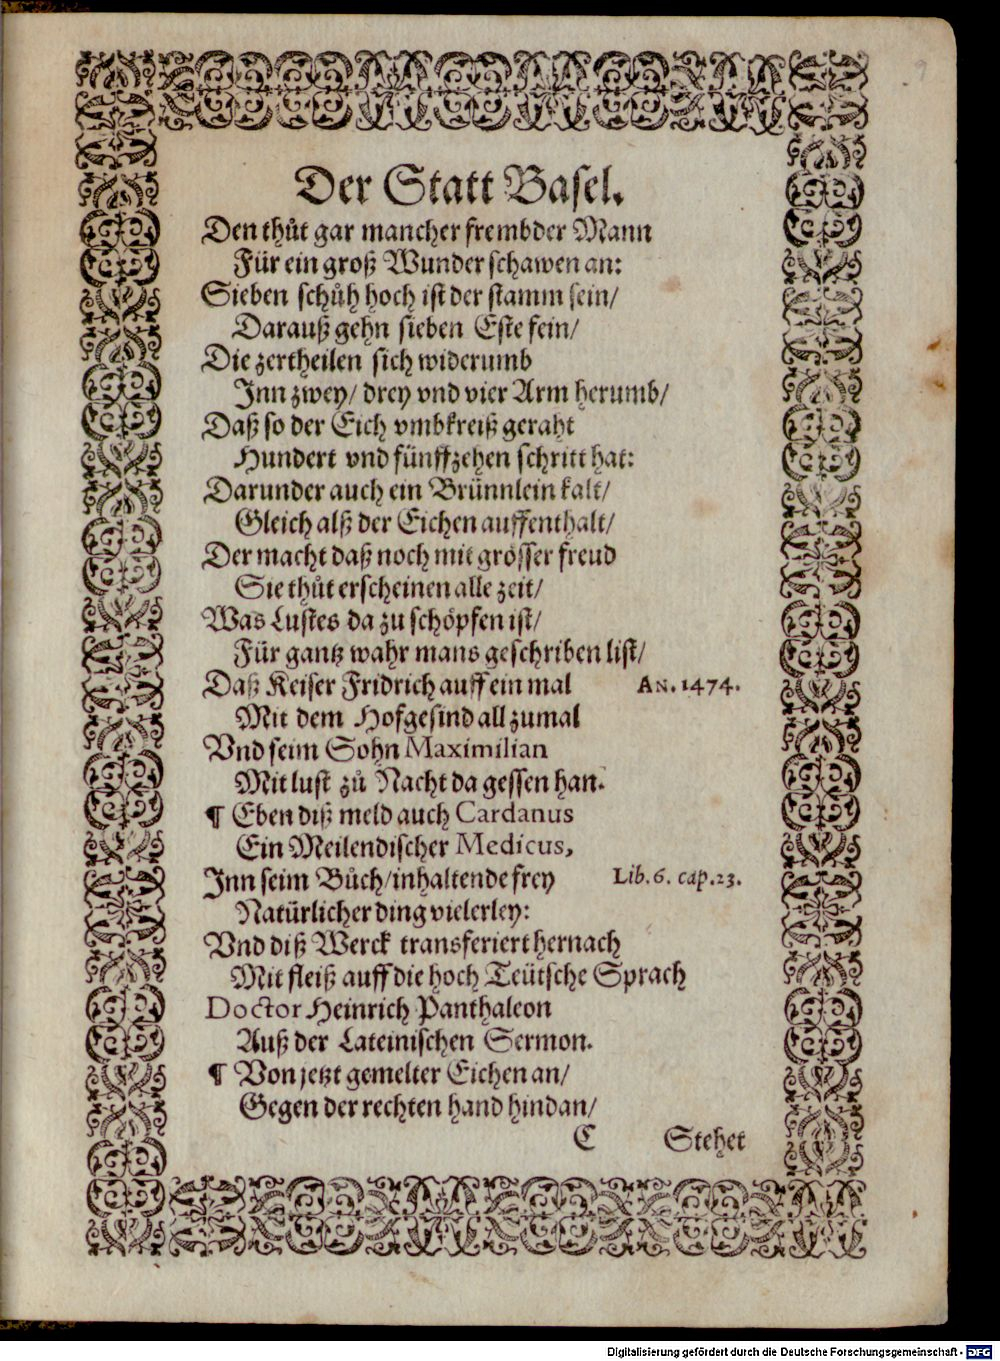 9
Der Statt Basel.
Den thůt gar mancher frembder Mann
Für ein groß Wunder schawen an:
Sieben schůh hoch ist der stamm sein/
Darauß gehn sieben Este fein/
Die zertheilen sich widerumb
Inn zwey/ drey vnd vier Arm herumb/
Daß so der Eich vmbkreiß geraht
Hundert vnd fünffzehen schritt hat:
Darunder auch ein Brünnlein kalt/
Gleich alß der Eichen auffenthalt/
Der macht daß noch mit grösser freud
Sie thůt erscheinen alle zeit/
Was Lustes da zu schöpfen ist/
Für gantz wahr mans geschriben list/
Daß Keiser Fridrich auff ein mal AN. 1474.
Mit dem Hofgesind all zumal
Vnd seim Sohn Maximilian
Mit lust zů Nacht da gessen han.
¶ Eben diß meld auch Cardanus
Ein Meilendischer Medicus,
Inn seim Bůch/ inhaltende frey Lib. 6. cap. 23.
Natürlicher ding vielerley:
Vnd diß Werck transferiert hernach
Mit fleiß auff die hoch Teütsche Sprach
Doctor Heinrich Panthaleon
Auß der Lateinischen Sermon.
¶ Von jetzt gemelter Eichen an/
Gegen der rechten hand hindan/
C Stehet
Digitalisierung gefördert durch die Deutsche Forschungsgemeinschaft - DFG